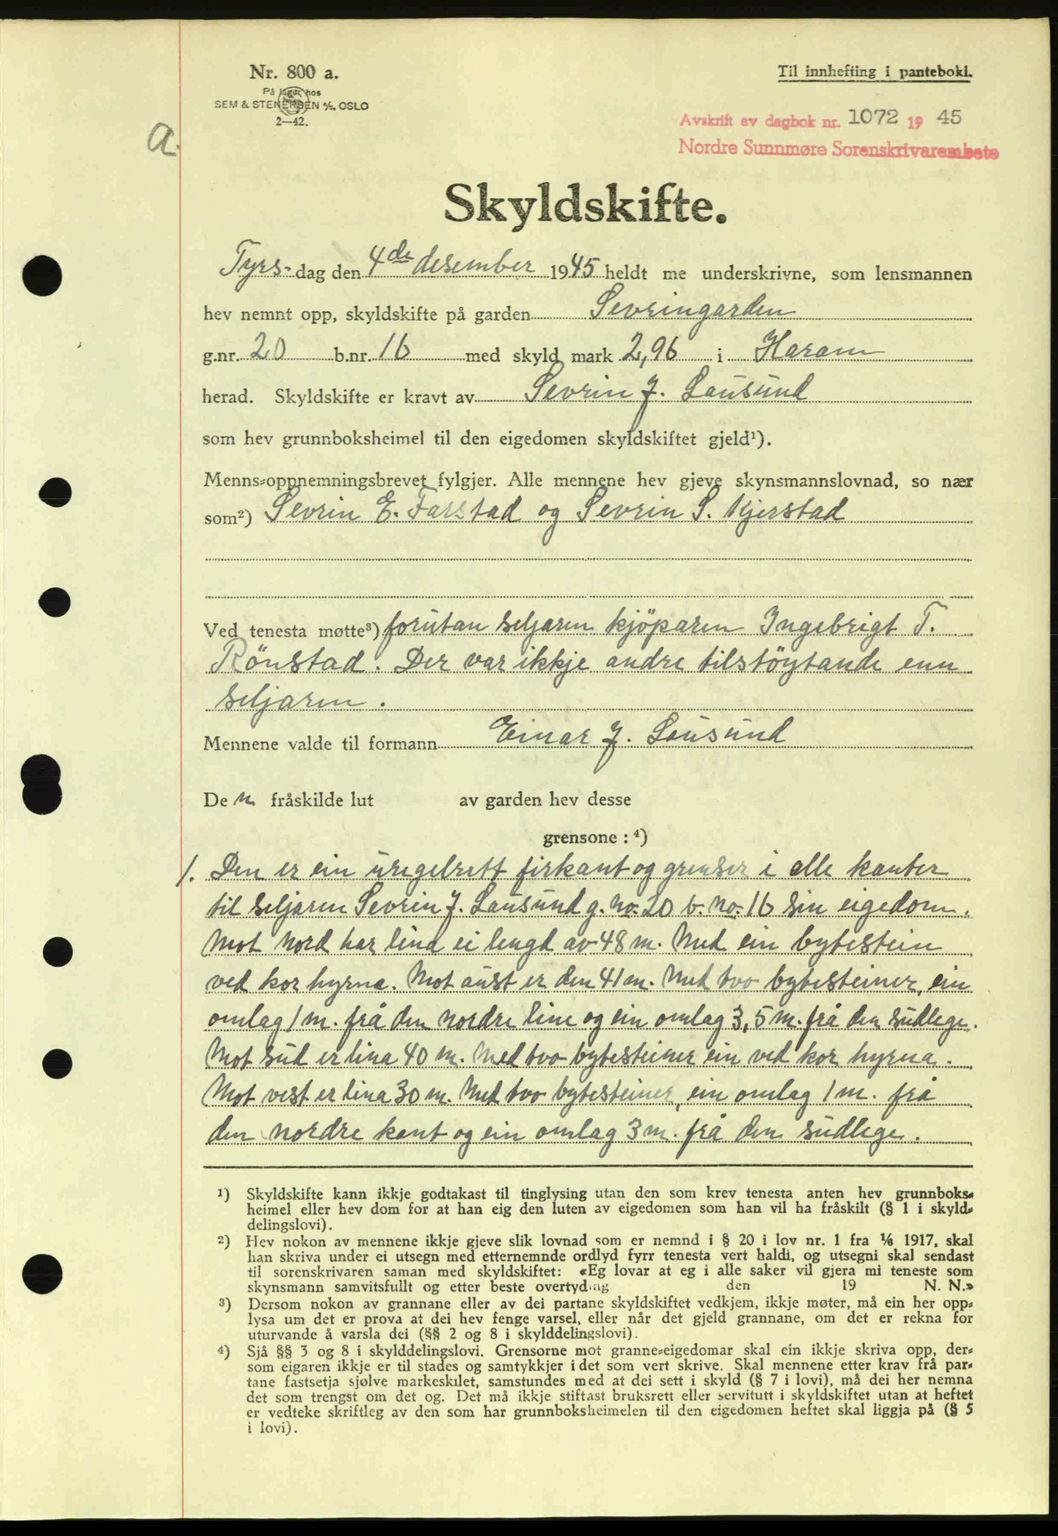 Nr. 800 a.
På lager hos
SEM & STENERSEN A/S, OSLO
2—42.
Til innhefting i panteboki.
Avskrift av dagbok nr. 1072 19 45
Nordre Sunnmøre Sorenskrivarembete
a.
Skyldskifte.
Tyrs-dag den 4de desember 1945 heldt me underskrivne, som lensmannen
hev nemnt opp, skyldskifte på garden Sevringarden
g.nr. 20 b.nr. 16 med skyld mark 2,96 i Haram
herad. Skyldskifte er kravt av Sevrin J. Lausund
som hev grunnboksheimel til den eigedomen skyldskiftet gjeld¹).
Menns-oppnemningsbrevet fylgjer. Alle mennene hev gjeve skynsmannslovnad, so nær
som²) Sevrin E. Farstad og Sevrin S. Kjerstad
Ved tenesta møtte³) forutan seljaren kjöparen Ingebrigt T.
Rönstad. Der var ikkje andre tilstöytande enn
seljaren.
Mennene valde til formann Einar J. Lausund
De n fråskilde lut av garden hev desse
grensone : ⁴)
1. Den er ein uregelrett firkant og grenser i alle kanter
til seljaren Sevrin J. Lausund g. no. 20 b. no. 16 sin eigedom.
Mot nord har lina ei lengd av 48 m. Med ein bytestein
ved kor hyrna. Mot aust er den 41 m. Med tvo bytesteiner, ein
omlag 1 m. frå den nordre line og ein omlag 3,5 m. frå den sudlege.
Mot sud er lina 40 m. Med tvo bytesteiner ein ved kor hyrna.
Mot vest er lina 30 m. Med tvo bytesteiner, ein omlag 1 m. frå
den nordre kant og ein omlag 3 m. frå den sudlege.
¹) Skyldskifte kann ikkje godtakast til tinglysing utan den som krev tenesta anten hev grunnboks-
heimel eller hev dom for at han eig den luten av eigedomen som han vil ha fråskilt (§ 1 i skyld-
delingslovi).
²) Hev nokon av mennene ikkje gjeve slik lovnad som er nemnd i § 20 i lov nr. 1 fra ⅙ 1917, skal
han skriva under ei utsegn med etternemnde ordlyd fyrr tenesta vert haldi, og utsegni skal sendast
til sorenskrivaren saman med skyldskiftet: «Eg lovar at eg i alle saker vil gjera mi teneste som
skynsmann samvitsfullt og etter beste overtyding den 19 N. N.»
³) Dersom nokon av grannane eller av dei partane skyldskiftet vedkjem, ikkje møter, må ein her opp-
lysa um det er prova at dei hev fenge varsel, eller når det gjeld grannane, om det er rekna for
uturvande å varsla dei (§§ 2 og 8 i skylddelingslovi).
⁴) Sjå §§ 3 og 8 i skylddelingslovi. Grensorne mot granne-eigedomar skal ein ikkje skriva opp, der-
som eigaren ikkje er til stades og samtykkjer i det som vert skrive. Skal mennene etter krav frå par-
tane fastsetja sjølve markeskilet, samstundes med at dei sett i skyld (§ 7 i lovi), må dei her nemna
det som trengst om det og. Det må ikkje stiftast bruksrett eller servitutt i skyldskiftet utan at heftet
er vedteke skriftleg av den som har grunnboksheimelen til den eigedomen heftet skal liggja på (§ 5
i lovi).